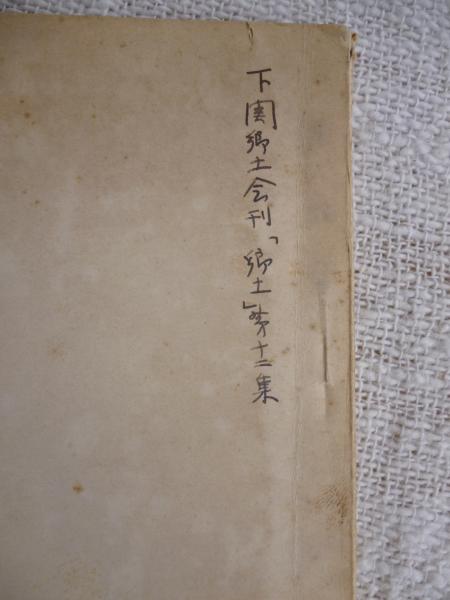 下関郷土会刊「郷土」第十二集